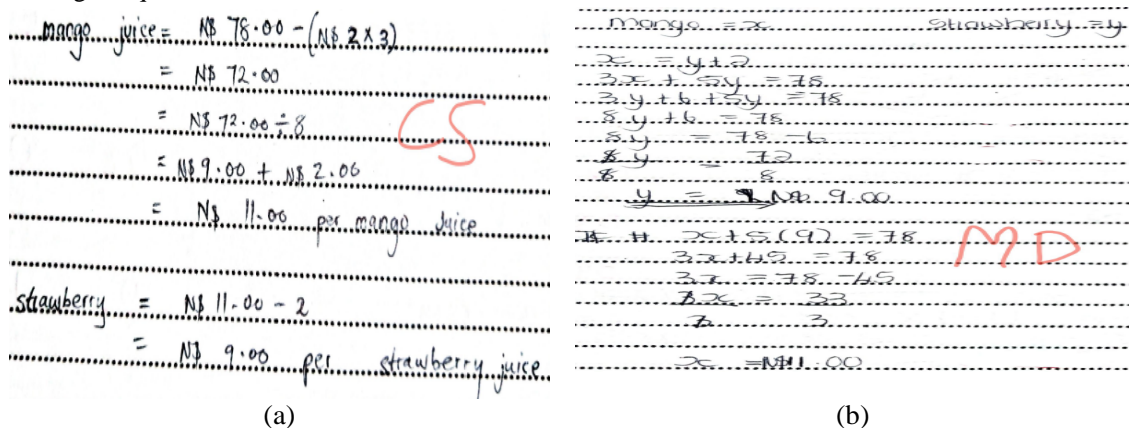 mango juice = N$ 78.00 - (N$ 2 x 3)
= N$ 72.00
= N$ 72.00 ÷ 8
CS
= N$ 9.00 + N$ 2.00
= N$ 11.00 per mango juice
strawberry = N$ 11.00 - 2
= N$ 9.00 per strawberry juice
(a)
mango = x strawberry = y
x = y + 2
3x + 5y = 78
3y + 6 + 5y = 78
8y + 6 = 78
8y = 78 - 6
8y = 72
8 8
y = N$ 9.00
x + 5(9) = 78
MD
3x + 45 = 78
3x = 78 - 45
3x = 33
3 3
x = N$11.00
(b)